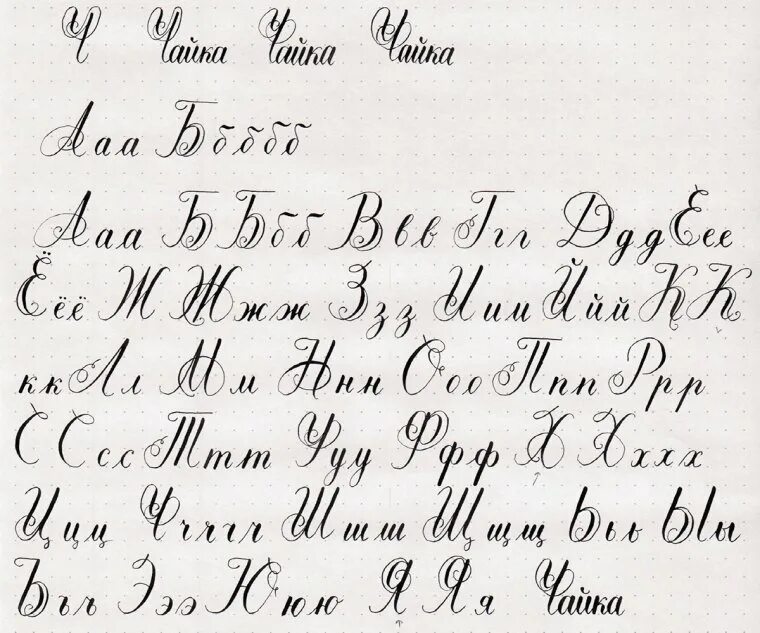 Ч Чайка Чайка Чайка
Ааа Ббббб
Ааа Б Ббб Ввв Ггг Ддд Еее
Ёёё Ж Жжж Ззз Иии Ййй К К
кк Лл Мм Ннн Ооо Ппп Ррр
С Ссс Ттт Ууу Ффф Х Хххх
Ццц Ччччч Шшш Щщщ Ььь Ыы
Ъъъ Эээ Ююю Я Яя Чайка